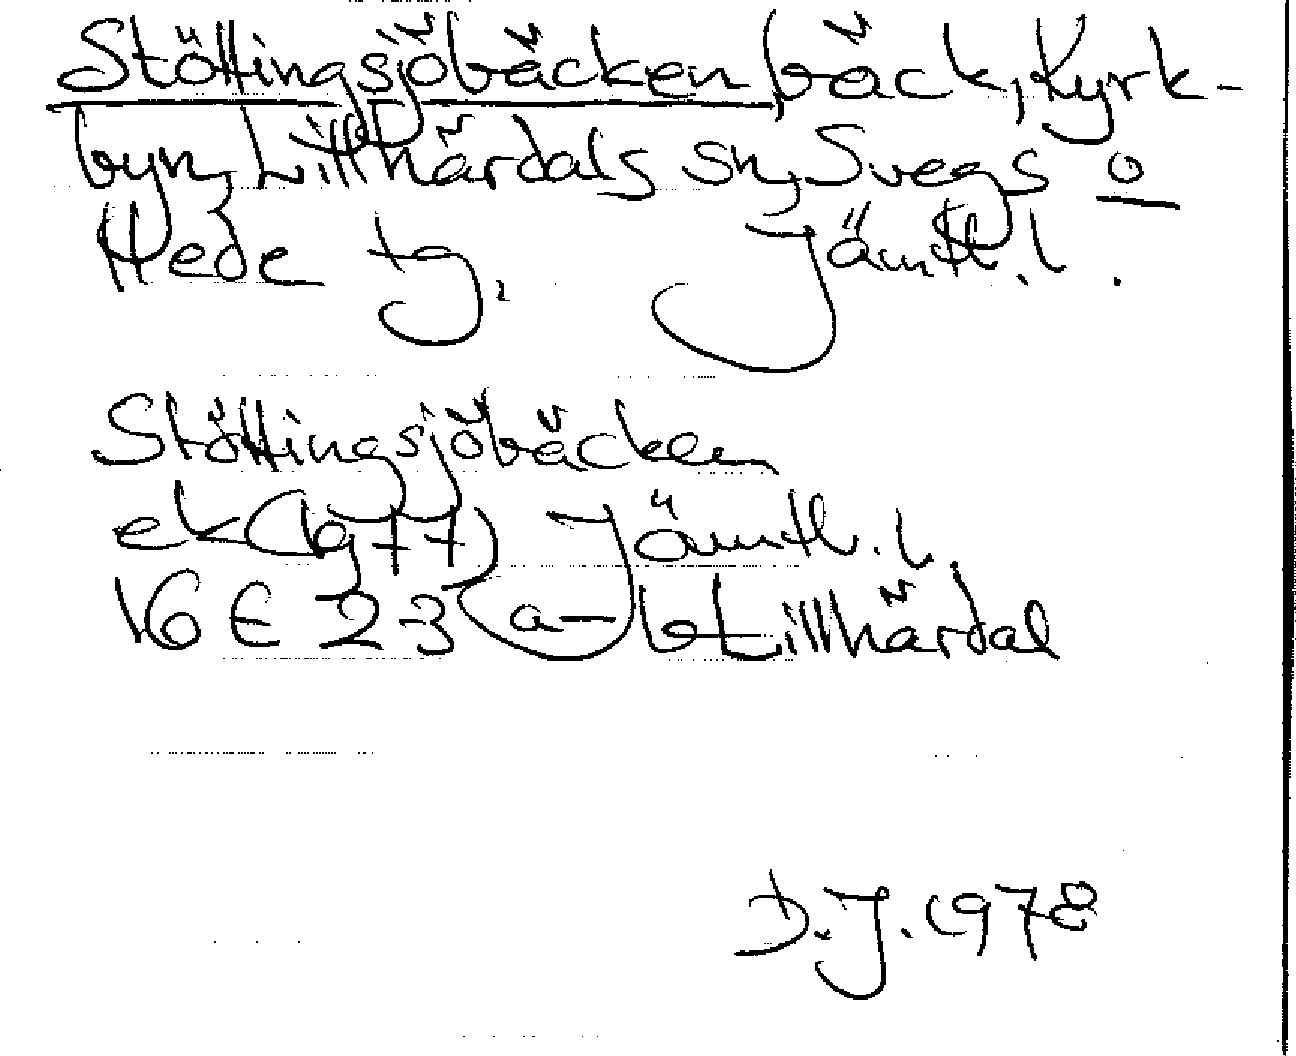 Stöttingsjöbäcken bäck, Kyrk-
byn, Lillhärdals sn, Svegs o
Hede tg. Jämtl. l.
Stöttingsjöbäcken
ek (bg 77) Jämtl. l.
16 E 2-3 a-b Lillhärdal
D.J. 1978